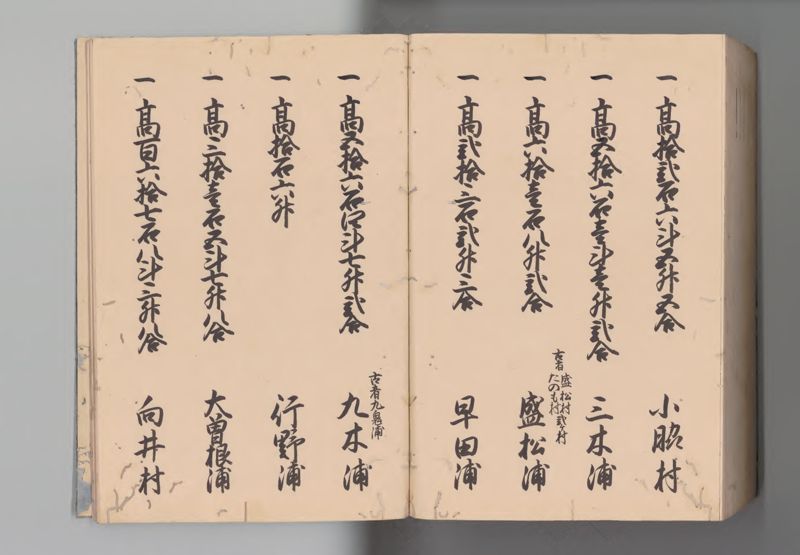 一 高拾弐石六斗五升五合 小脇村
一 高五拾六石壱斗壱升弐合 三木浦
古者 盛松村
たのも村 弐ケ村
一 高六拾壱石八升弐合 盛松浦
一 高弐拾三石弐升三合 早田浦
古者九鬼浦
一 高五拾六石四斗七升弐合 九木浦
一 高拾石六升 行野浦
一 高三拾壱石五斗七升八合 大曽根浦
一 高百六拾七石八斗三升八合 向井村